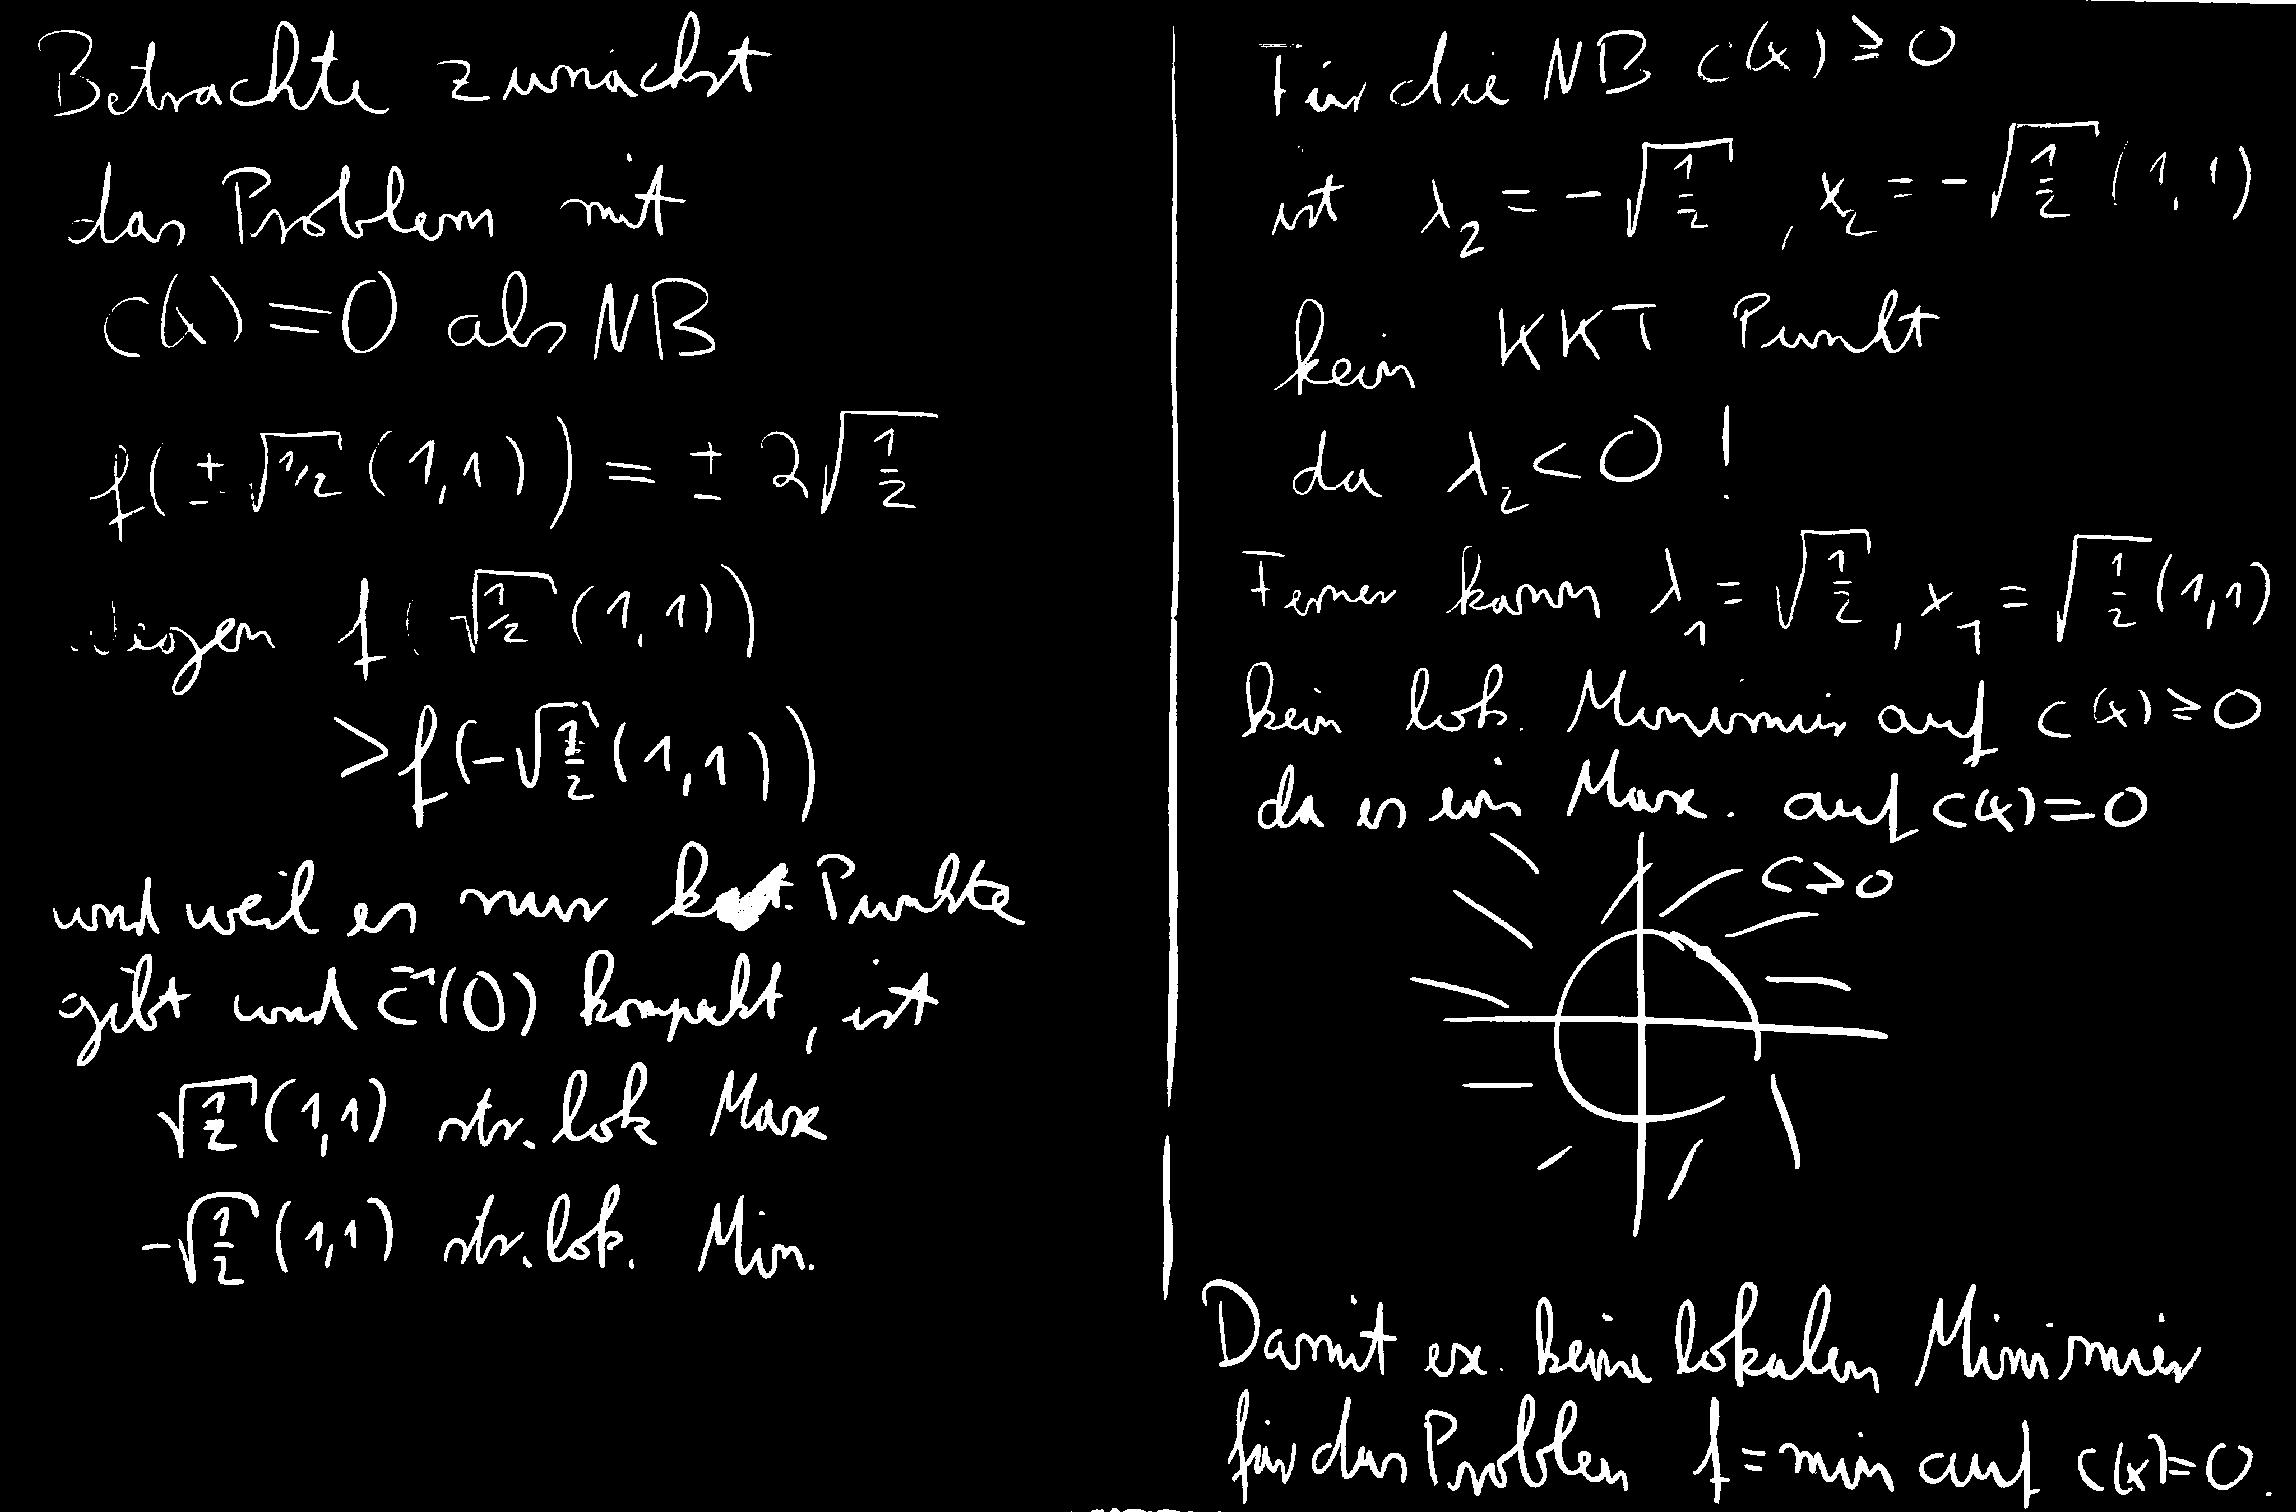 Betrachte zunächst
das Problem mit
c(x) = 0 als NB
f(± √1/2 (1,1)) = ± 2√1/2
wegen f(√1/2 (1,1))
> f(-√1/2 (1,1))
und weil es nur Punkte
gibt und c⁻¹(0) kompakt, ist
√1/2 (1,1) str. lok Max
-√1/2 (1,1) str. lok. Min.
Für die NB c(x) ≥ 0
ist λ₂ = -√1/2, x₂ = -√1/2 (1,1)
kein KKT Punkt
da λ₂ < 0 !
Ferner kann λ₁ = √1/2, x₁ = √1/2 (1,1)
kein lok. Minimier auf c(x) ≥ 0
da es ein Max. auf c(x) = 0
C ≥ 0
Damit ex. keine lokalen Minimier
für das Problem f = min auf c(x) ≥ 0.